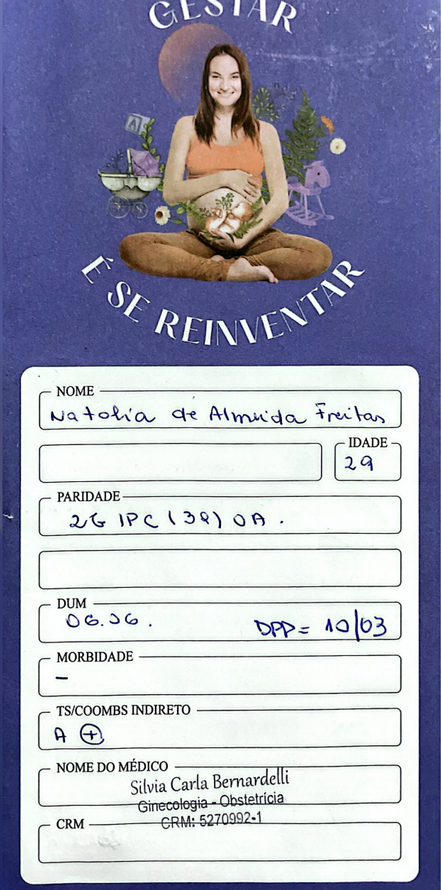 GESTAR
É SE REINVENTAR
NOME
Natalia de Almeida Freitas
IDADE
29
PARIDADE
2G 1PC (38) 0A.
DUM
06.06.
DPP = 10/03
MORBIDADE
-
TS/COOMBS INDIRETO
A +
NOME DO MÉDICO
Silvia Carla Bernardelli
Ginecologia - Obstetrícia
CRM: 5270992-1
CRM